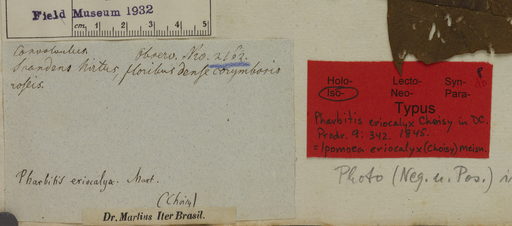 Field Museum 1932
cm 1 2 3 4 5
Convolvulus. Observ. Nro. 2162.
Scandens hirtus, floribus dense corymbosis
roseis.
Pharbitis eriocalyx. Mart.
(Choisy)
Dr. Martius Iter Brasil.
Holo- Lecto- Syn-
Iso- Neo- Para-
Typus
Pharbitis eriocalyx Choisy in DC.
Prodr. 9: 342. 1845.
= Ipomoea eriocalyx (Choisy) Meisn.
Photo (Neg. u. Pos.)